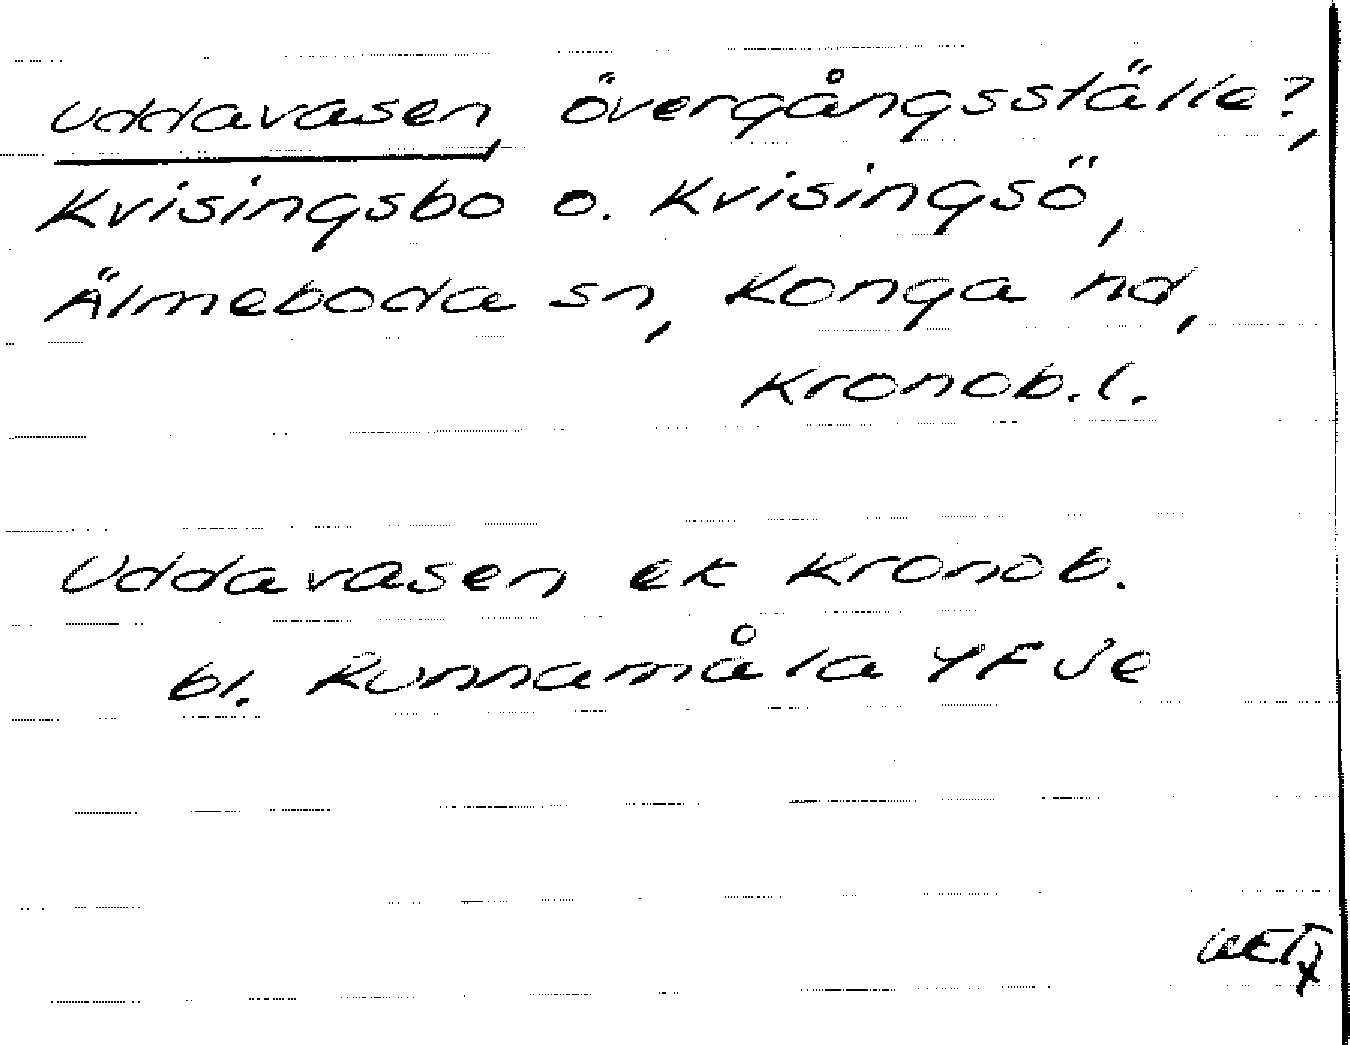 Uddavasen, övergångsställe?,
Kvisingsbo o. Kvisingsö,
Älmeboda sn, Konga hd,
Kronob. l.
Uddavasen ek Kronob.
bl. Runnamåla 4F Je